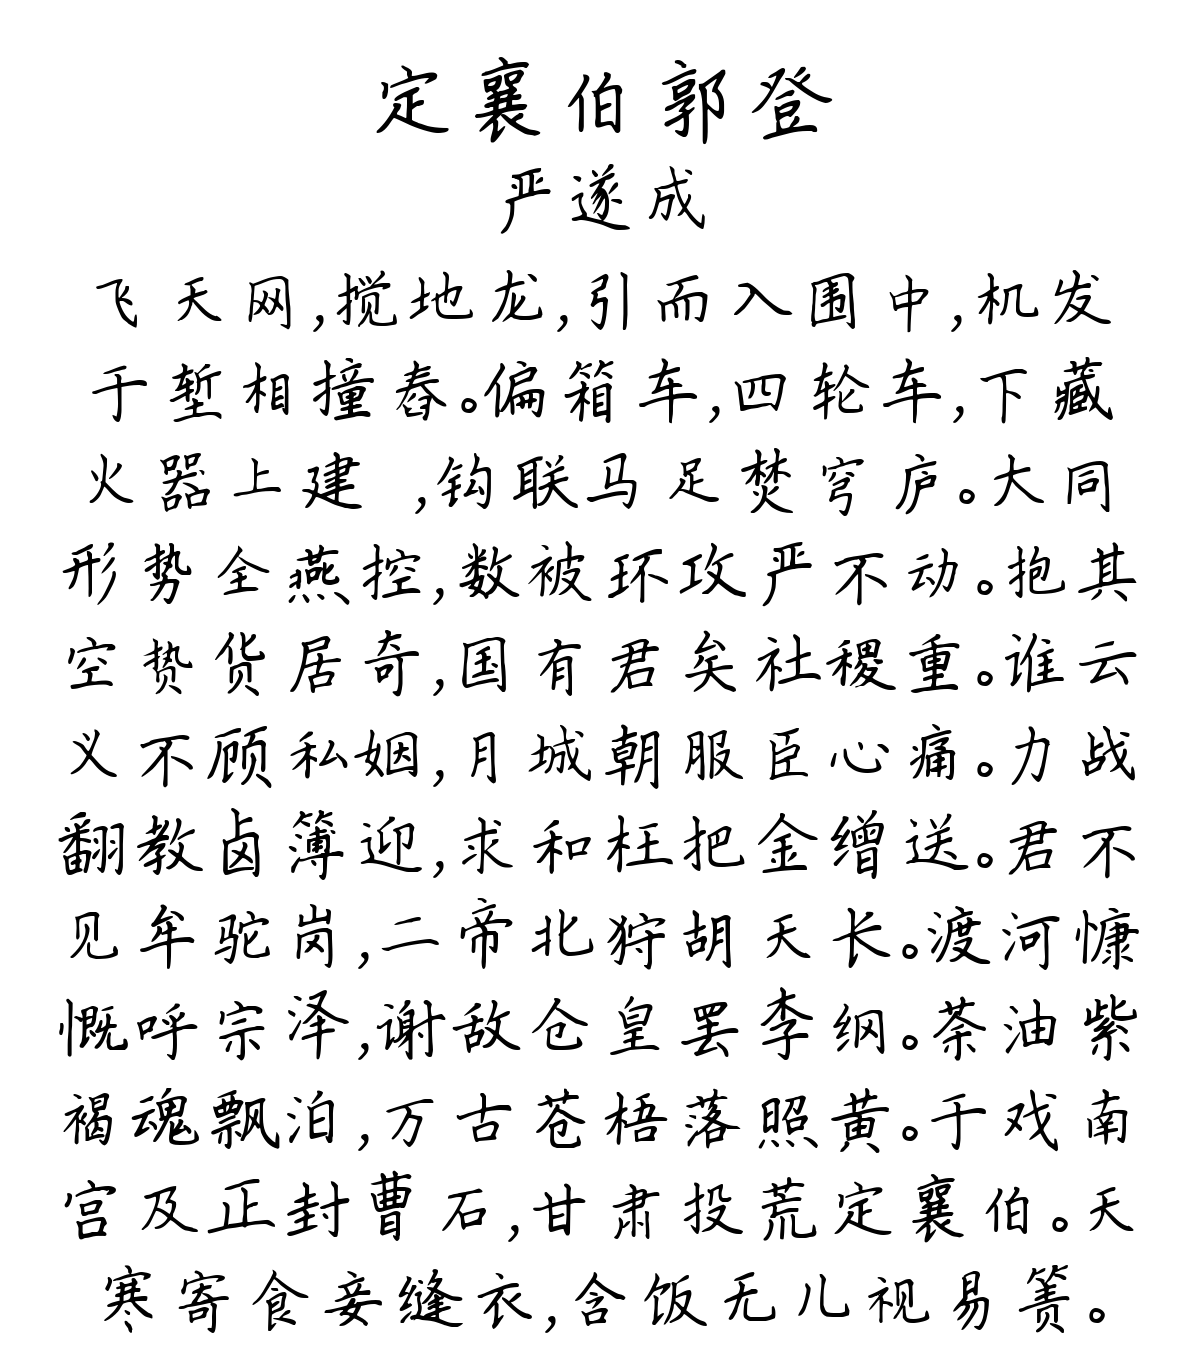 定襄伯郭登
严遂成
飞天网,搅地龙,引而入围中,机发
于堑相撞舂。偏箱车,四轮车,下藏
火器上建 ,钩联马足焚穹庐。大同
形势全燕控,数被环攻严不动。抱其
空贽货居奇,国有君矣社稷重。谁云
义不顾私姻,月城朝服臣心痛。力战
翻教卤簿迎,求和枉把金缯送。君不
见牟驼岗,二帝北狩胡天长。渡河慷
慨呼宗泽,谢敌仓皇罢李纲。荼油紫
褐魂飘泊,万古苍梧落照黄。于戏南
宫及正封曹石,甘肃投荒定襄伯。天
寒寄食妾缝衣,含饭无儿视易箦。